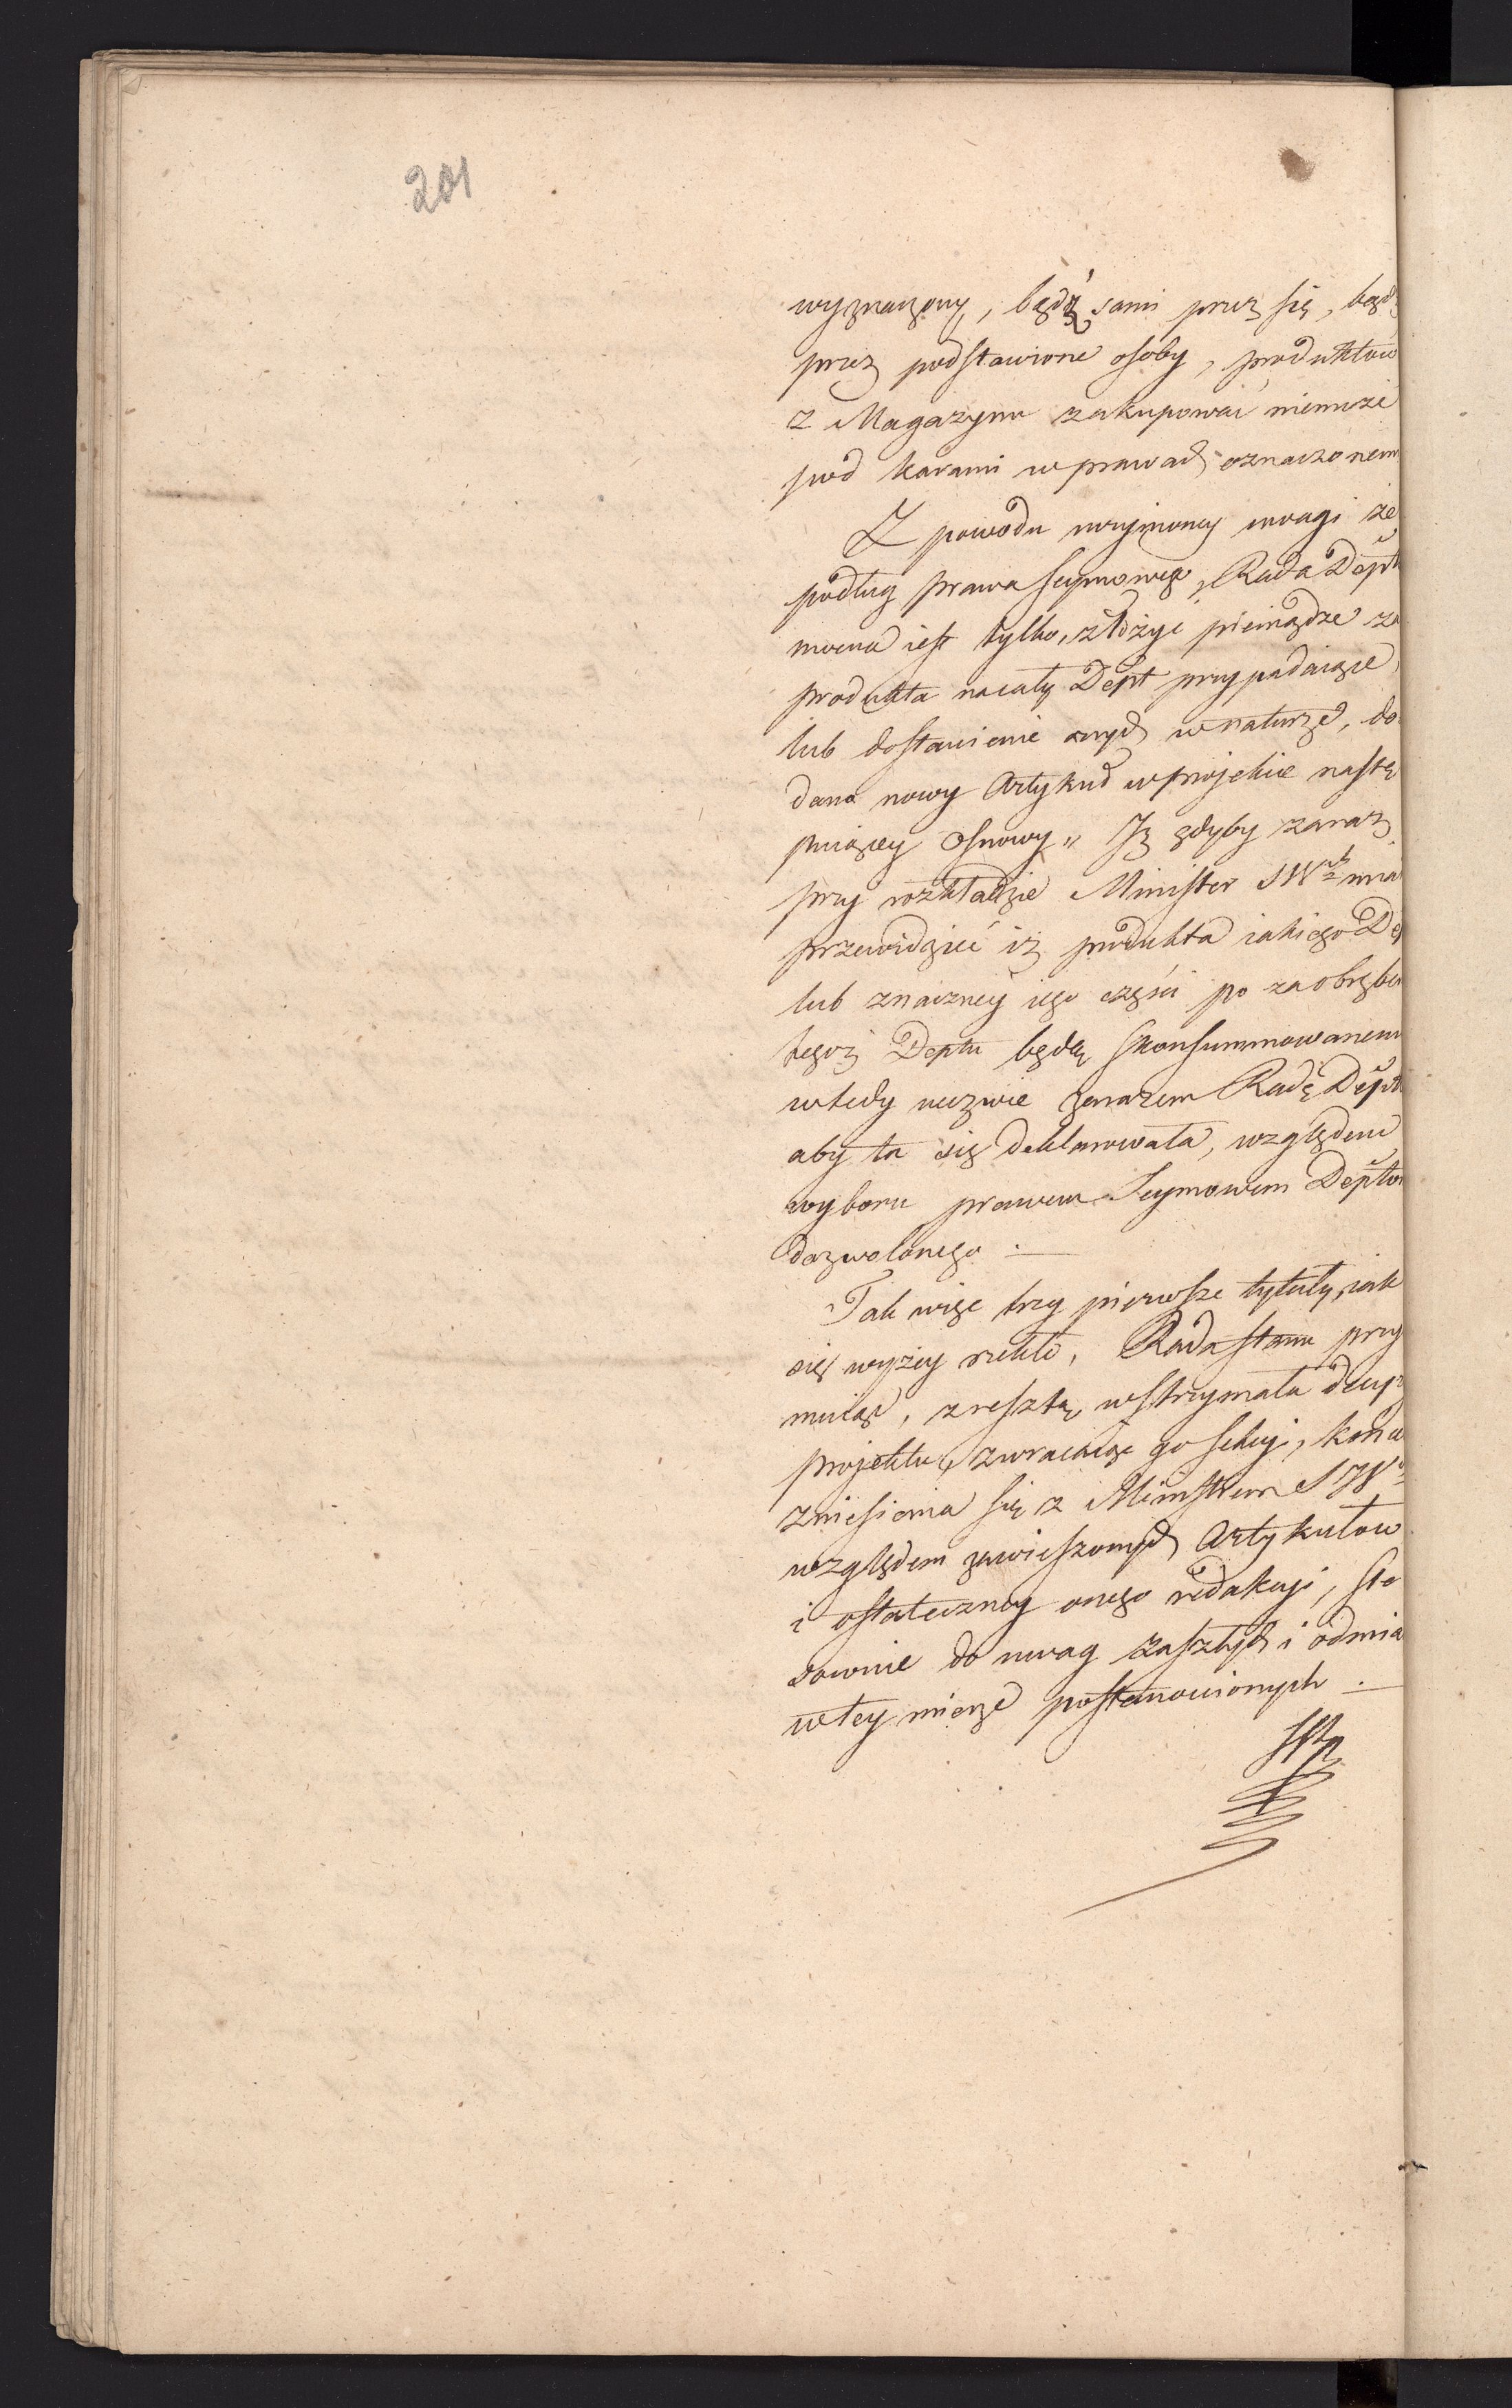 201
wyznaczony, bądź sami przez się, bądź
przez podstawione osoby, produktów
z Magazynu zakupować niemoże
pod karami w prawach oznaczonem
Z powodu uczynioney uwagi że
podług prawa Seymowego, Rada Dept
mocna iest tylko, złożyć pieniądze za
produkta nacały Dept przypadaiące,
lub dostawienie onych w naturze, do
dano nowy Artykuł w projekcie nastę
puiącey Osnowy „ Iż gdyby zaraz
przy rozkładzie Minister SW miał
przewidzieć iż produkta iakiego De
lub znaczney iego części po za obrębem
tegoż Deptu będą skonsummowanem
wtedy wezwie zarazem Radę Dept
aby ta się deklarowała, względem
wyboru prawem Seymowem Depto
dozwolonego .
Tak więc trzy pierwsze tytuły, iak
się wyżey rzekło, Rada Stanu przy
muiąc, zresztą wstrzymała decyz
projektu, zwracaiąc go Sekcyi, końcu
zniesienia się z Ministrem SW
względem zawieszonych Artykułów
i ostateczney onego redakcyi, sto
sownie do uwag zaszłych i odmia
w tey mierze postanowionych .